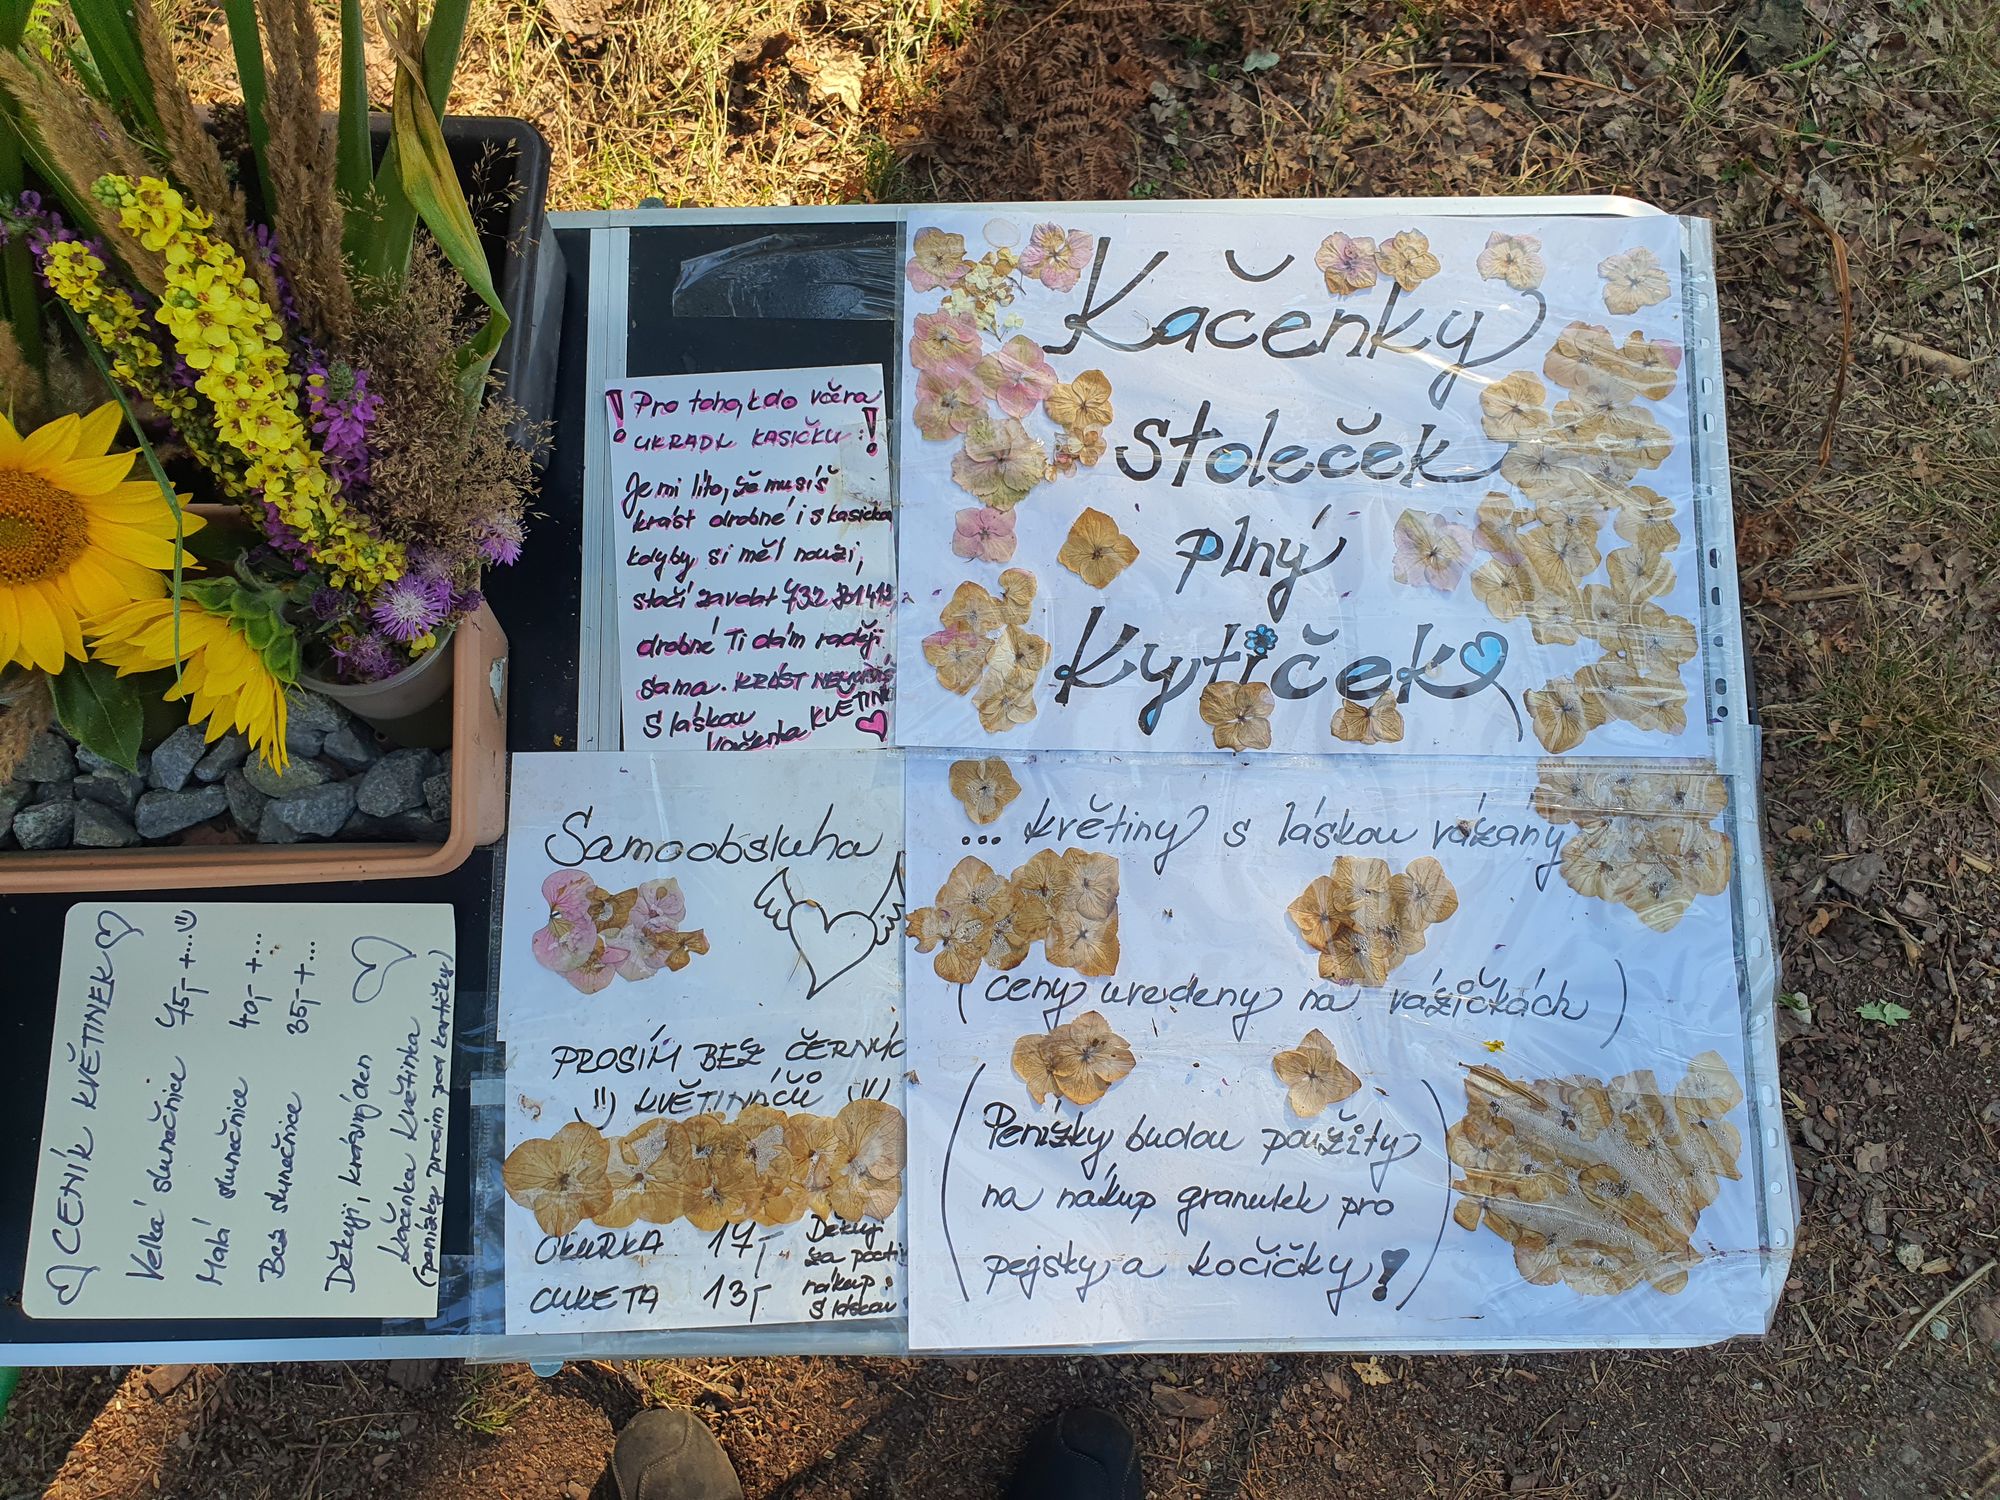 Kačenky
stoleček
plný
Kytiček
! Pro toho, kdo včera
UKRADL KASIČKU: !
Je mi líto, že musíš
krást drobné i s kasičkou
kdyby si měl nouzi,
stačí zavolat
drobné Ti dám raději
sama. KRÁST
S láskou
Kačenka KVĚTINK
... květiny s láskou vázany
(ceny uvedeny na vázičkách)
(Penízky budou použity
na nákup granulek pro
pejsky a kočičky!)
Samoobsluha
PROSÍM BEZ ČERNÝC
KVĚTINÁČŮ
OKURKA 17,-
CUKETA 13,-
Děkuji
za pocti
nákup.
S láskou
CENÍK KVĚTINEK
Velká slunečnice 45,- +...
Malá slunečnice 40,- +...
Bez slunečnice 35,- +...
Děkuji, krásný den
Kačenka Květinka
(penízky prosím pod kartičky)